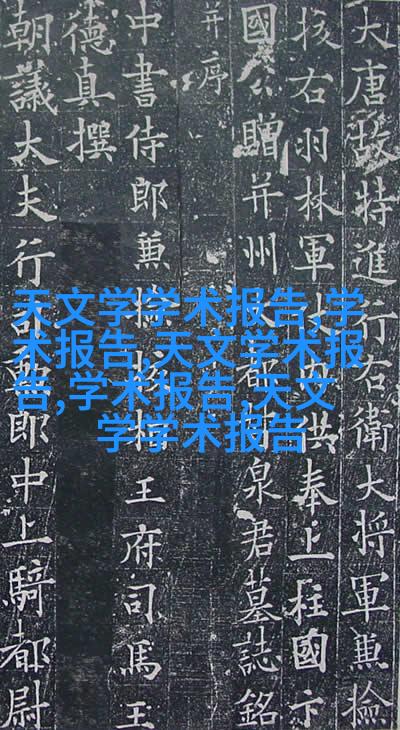 大唐故特進行右衛大將軍兼檢
校右羽林軍仗內供奉上柱國卞
國公贈并州大都督泉君墓誌銘
并序
中書侍郎兼檢校相王府司馬王
德真撰
朝議大夫行司勳郎中上騎都尉
天文学学术报告,学
术报告,天文学术报
告,学术报告,天文
学学术报告